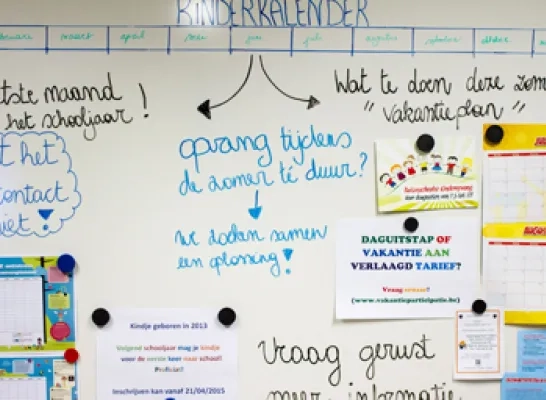 KINDERKALENDER
maart april mei juni juli augustus september oktober
tste maand
het schooljaar!
Wat te doen deze zom
"vakantieplan"
opvang tijdens
de zomer te duur?
we zoeken samen
een oplossing!
t het
contact
niet!
Buitenschoolse Kinderopvang
DAGUITSTAP OF
VAKANTIE AAN
VERLAAGD TARIEF?
Vraag ernaar!
(www.vakantieparticipatie.be)
Kindje geboren in 2013
Volgend schooljaar mag je kindje
voor de eerste keer naar school!
Proficiat!
Inschrijven kan vanaf 21/04/2015
Vraag gerust
meer informatie